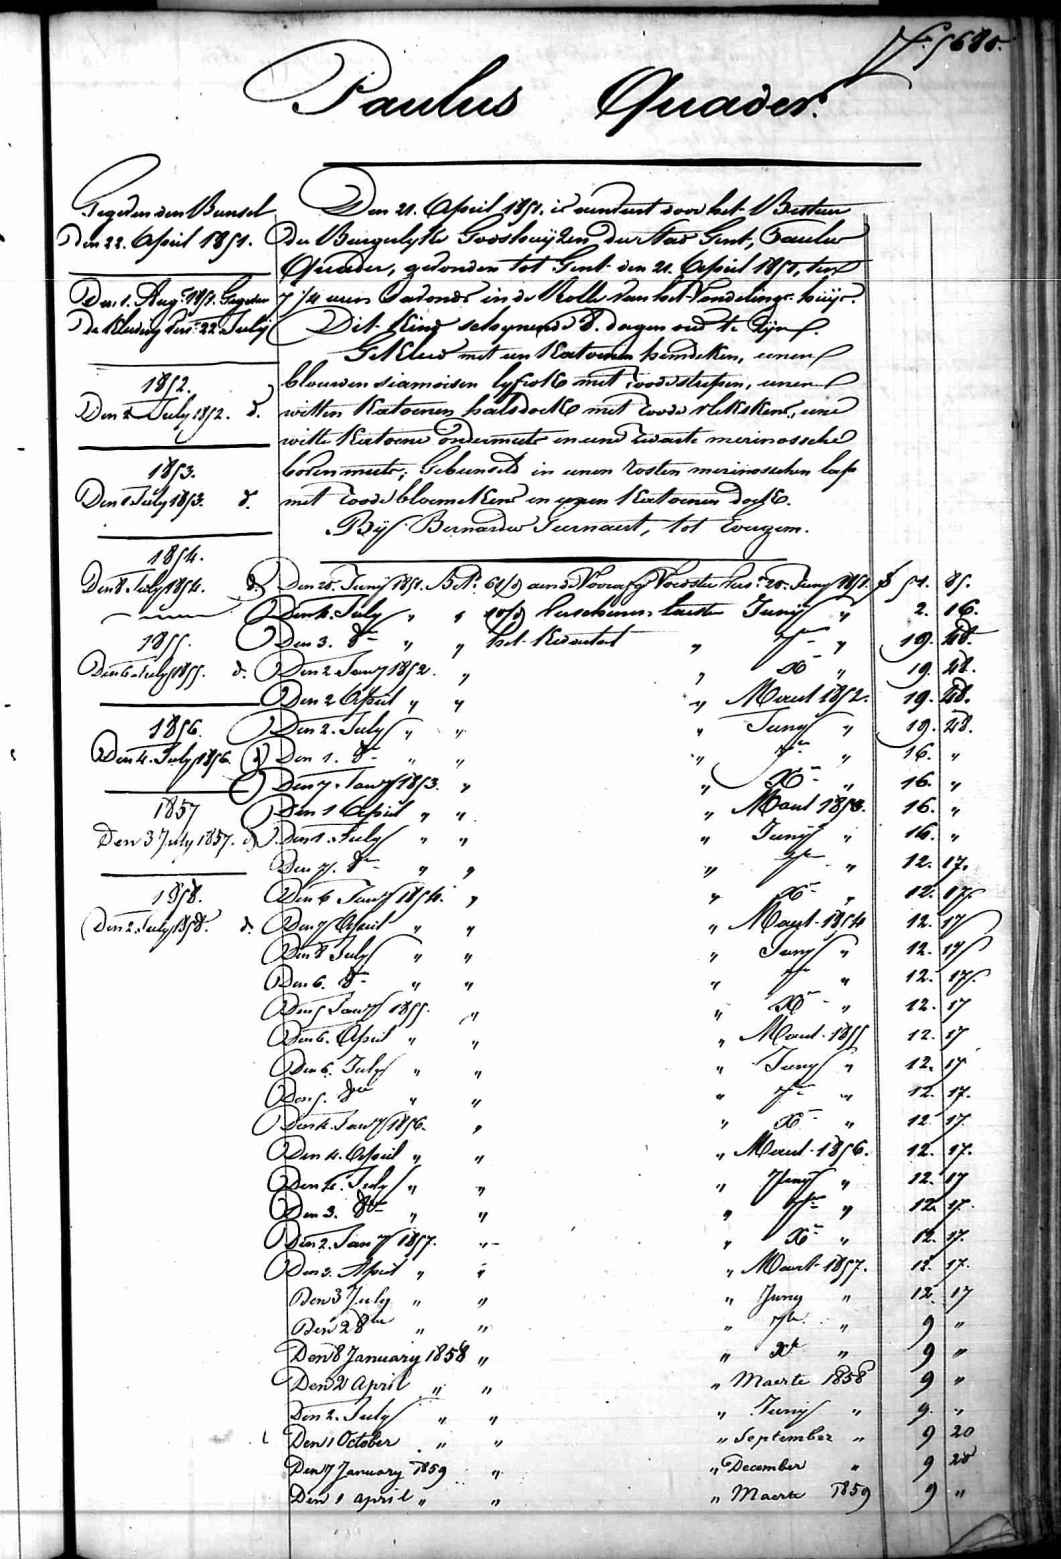 Nr. 5680.
Paulus Quader.
Gegeven den Bunsel
Den 22. April 1851.
Den 1. Augt. 1851. Gegeven
de Kleeding vers. 22 July
1852.
Den 2 July 1852. d.
1853.
Den 1 July 1853. d.
1854.
Den 8. July 1854. d.
1855.
Den 6 July 1855. d.
1856.
Den 4. July 1856. d.
1857
Den 3 July 1857. d.
1858.
Den 2. July 1858. d.
Den 21. April 1851. is aenveert door het Bestuer
der Burgerlyke Godshuyzen der Stad Gent, Paulus
Quader, gevonden tot Gent den 21. April 1851, ten
7 1/4 uren s'avonds in de Rolle van het Vondelings-huys.
Dit Kind schynende 8. dagen oud te zyn.
Gekleed met een Katoenen hemdeken, eenen
blauwen siamoisen lyfrok met roode strepen, eenen
witten Katoenen halsdoek met roode vlekskens, eene
witte Katoene ondermuts en eene zwarte merinossche
bovenmuts; Gebunseld in eenen rosten merinoschen lap
met roode bloemekens en eenen Katoenen doek.
Bij Bernardus Teernaert, tot Evergem.
Den 25. Juny 1851. Bet. aen de Voorafg. Voedster vers. 25. Juny 1851. f 51. 85.
Den 4. July " " verschenen laeste Juny " 2. 16.
Den 3. 8re " " het Kwartaet " 7re " 19. 28.
Den 2 Jany 1852. " " Xre " 19. 28.
Den 2 April " " " Maert 1852. 19. 28.
Den 2. July " " " Juny " 19. 28.
Den 1. 8re " " " 7re " 16. "
Den 7. Jany 1853. " " Xre " 16. "
Den 1 April " " " Maert 1853. 16. "
Den 1. July " " " Juny " 16. "
Den 7. 8re " " " 7re " 12. 17.
Den 6 Jany 1854. " " Xre " 12. 17.
Den 7 April " " " Maert 1854 12. 17
Den 8 July " " " Juny " 12. 17
Den 6. 8re " " " 7re " 12. 17.
Den 5 Jany 1855. " " Xre " 12. 17
Den 6. April " " " Maert 1855 12. 17
Den 6. July " " " Juny " 12. 17
Den 5. 8re " " " 7re " 12. 17.
Den 4. Jany 1856. " " Xre " 12. 17.
Den 4. April " " " Maert 1856. 12. 17.
Den 4. July " " " Juny " 12. 17
Den 3. 8re " " " 7re " 12. 17.
Den 2. Jany 1857. " " Xre " 12. 17.
Den 3. April " " " Maert 1857. 12. 17.
Den 3 July " " " Juny " 12. 17
Den 2 8re " " " 7re " 9 "
Den 8 January 1858 " " Xre " 9 "
Den 2 April " " " Maerte 1858 9 "
Den 2. July " " " Juny " 9. "
Den 1 October " " " September " 9 20
Den 7 January 1859 " " December " 9 20
Den 1 april " " " Maerte 1859 9 "